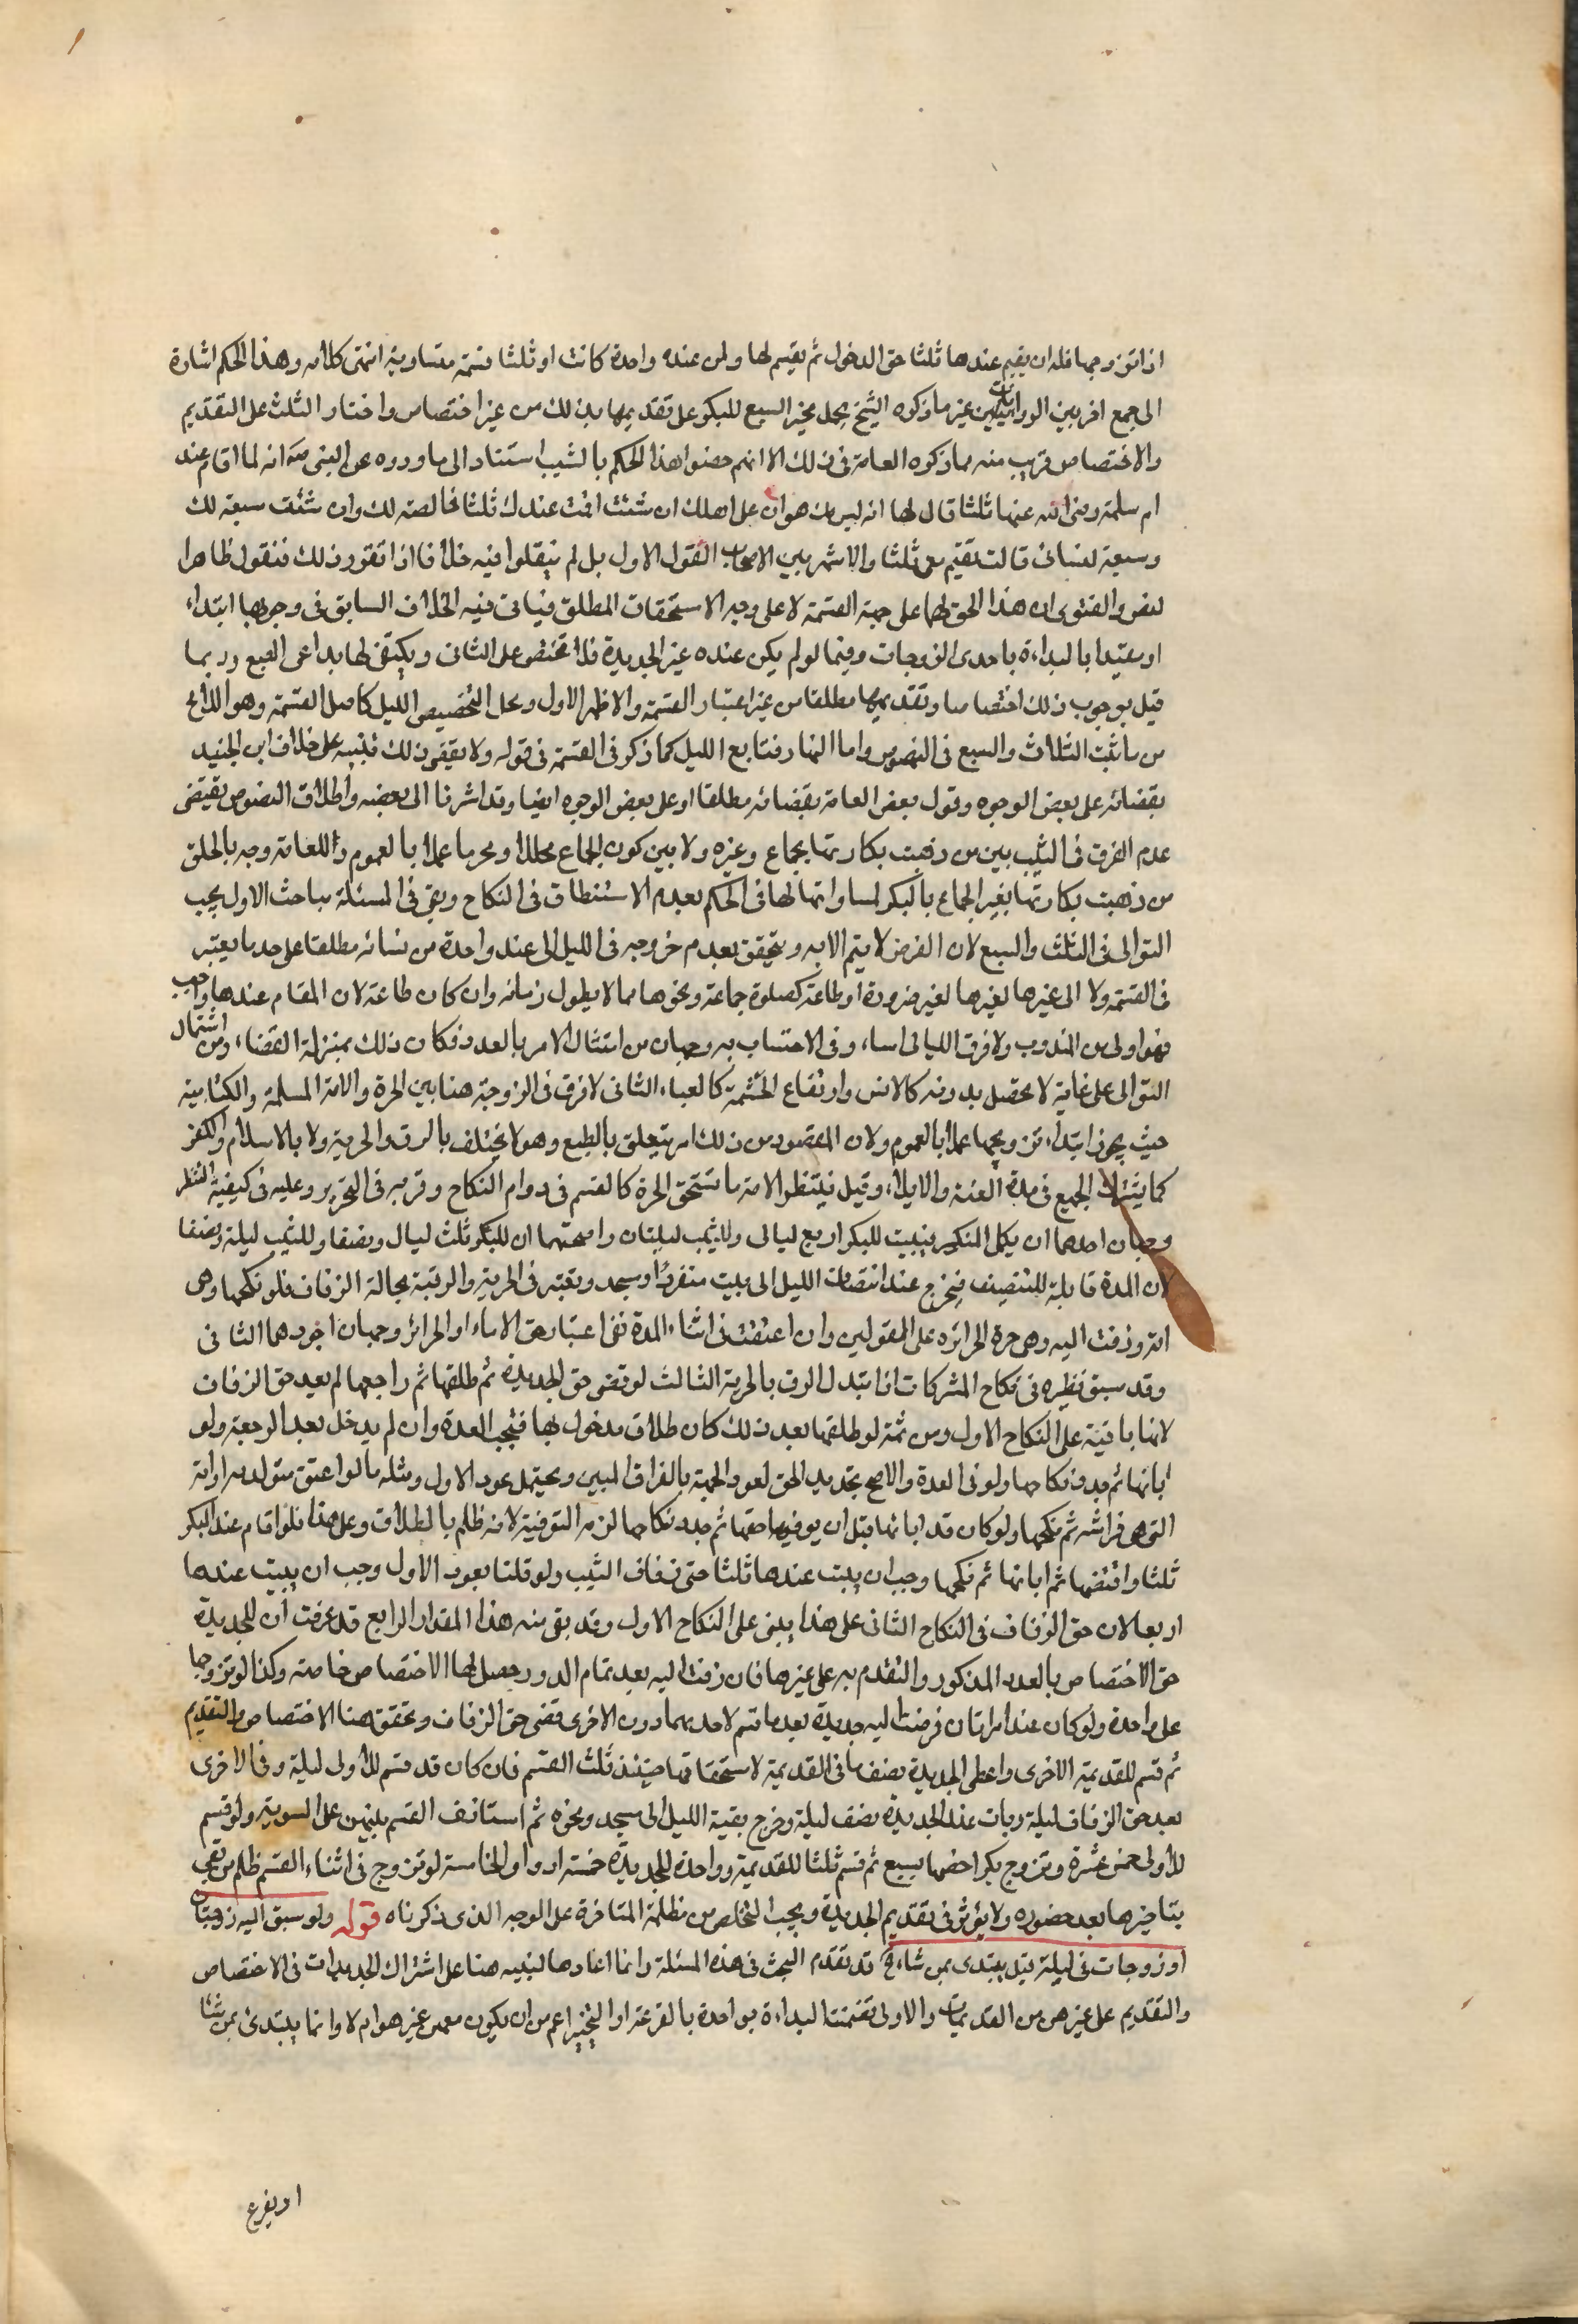 اذا تزوجها فله ان يقيم عندها ثلثا حق الدخول ثم يقسم لها ولمن عنده واحدة كانت او ثلثا قسمة متساوية انتهى كلامه وهذا الحكم اشارة
الى جمع اخر بين الروايتين غير ما ذكره الشيخ بحمل خبر السبع للبكر على تقديمها بذلك من غير اختصاص واختار الثلث على التقديم
والاختصاص قريب منه مما ذكره العامة فى ذلك الا انهم خصوا هذا الحكم بالثيب استنادا الى ما ورووه عن النبى ص انه لما اقام عند
ام سلمة رضى الله عنها ثلثا قال لها انه ليس بك هوان على اهلك ان شئت اقمت عندك ثلثا خالصة لك وان شئت سبعة لك
وسبعة لنسائى قالت تقيم معى ثلثا والاشهر بين الاصحاب القول الاول بل لم ينقلوا فيه خلافا اذا تقرر ذلك فنقول ظاهر
النص والفتوى ان هذا الحق لها على جهة القسمة لا على وجه الاستحقاق المطلق فياتى فيه الخلاف السابق فى وجوبها ابتداء
او مقيدا بالبداءة باحدى الزوجات وفيما لو لم يكن عنده غير الجديدة فلا تختص على الثانى ويكتفى لها بدا عى الطبع وربما
قيل بوجوب ذلك اختصاصا وتقديمها مطلقا من غير اعتبار القسمة والاظهر الاول ومحل التخصيص الليل كاصل القسمة وهو اللائح
من تأنيث الثلاث والسبع فى النصوص واما النهار فتابع الليل كما ذكر فى القسمة فى قوله ولا يقضى ذلك تنبيه على خلاف ابن الجنيد
بقضائه على بعض الوجوه وقول بعض العامة بقضائه مطلقا او على بعض الوجوه ايضا وقد اشرنا الى بعضه واطلاق النصوص يقتضى
عدم الفرق فى الثيب بين من ذهبت بكارتها بجماع وغيره ولا بين كون الجماع محللا ومحرما عملا بالعموم وللعامة وجه بالحاق
من ذهبت بكارتها بغير الجماع بالبكر لمساواتها لها فى الحكم بعدم الاستنطاق فى النكاح وبقى فى المسئلة مباحث الاول يجب
التوالى فى الثلث والسبع لان الغرض لا يتم الا به ويتحقق بعدم خروجه فى الليل الى عند واحدة من نسائه مطلقا على حد ما يعتبر
فى القسمة ولا الى غيرها لغير ضرورة او طاعة كصلوة جماعة ونحوها مما لا يطول زمانه وان كان طاعة لان المقام عندها واجب
فهو اولى من المندوب ولو فرق الليالى اساء وفى الاحتساب به وجهان من امتثال الامر بالعدد فكان ذلك بمنزلة القضاء ومن اشتمال
التوالى على غاية لا تحصل بدونه كالانس وارتفاع الحشمة كالعباء الثانى لا فرق فى الزوجة هنا بين الحرة والامة المسلمة والكتابية
حيث يجوز ابتداء تزويجها عملا بالعموم ولان المقصود من ذلك امر يتعلق بالطبع وهو لا يختلف بالرق والحرية ولا بالاسلام والكفر
كما يشترك الجميع فى مدة العنة والايلاء وقيل يتشطر الامة ما تستحق الحرة كالقسم فى دوام النكاح وقربه فى التحرير وعليه فى كيفية التشطر
وجهان احدهما ان يكمل المنكسر فيبيت للبكر اربع ليالى وللثيب ليلتان واصحهما ان للبكر ثلث ليال ونصفا وللثيب ليلة ونصفا
لان المدة قابلة للتنصيف فيخرج عند انتصاف الليل الى بيت منفردا ومسجد ويعتبر فى الحرية والرقية بحالة الزفاف فلو نكحها وهى
امة وزفت اليه وهى حرة فالحرائر على القولين وان اعتقت فى اثناء المدة ففى اعتبار حق الاماء او الحرائر وجهان اجودهما الثانى
وقد سبق نظيره فى نكاح المشركات اذا تبدل الرق بالحرية الثالث لو قضى حق الجديدة ثم طلقها ثم راجعها لم يعد حق الزفاف
لانها باقية على النكاح الاول ومن ثمة لو طلقها بعد ذلك كان طلاق مدخول بها فتجب العدة وان لم يدخل بعد الرجعة ولو
ابانها ثم جدد نكاحها ولو فى العدة والاصح تجديد الحق لعود الجهة بالفراق المبين ويحتمل عود الاول ومثله ما لو اعتق مستولدته او امته
التى هى فراشه ثم نكحها ولو كان قد ابانها قبل ان يوفيها حقها ثم جدد نكاحها لزمه التوفية لانه ظلم بالطلاق وعلى هذا فلو اقام عند البكر
ثلثا وافتضها ثم ابانها ثم نكحها وجب ان يبيت عندها ثلثا حق زفاف الثيب ولو قلنا بعود الاول وجب ان يبيت عندها
اربعا لان حق الزفاف فى النكاح الثانى على هذا يبنى على النكاح الاول وقد بقى منه هذا المقدار الرابع قد عرفت ان للجديدة
حق الاختصاص بالعدد المذكور والتقدم به على غيرها فان زفت اليه بعد تمام الدور حصل لها الاختصاص خاصة وكذا لو تزوجها
على واحدة ولو كان عنده امراتان فزفت اليه جديدة بعد ما قسم لاحديهما دون الاخرى قضى حق الزفاف وتحقق هنا الاختصاص والتقديم
ثم قسم للقديمة الاخرى واعطى الجديدة نصف ما فى القديمة لاستحقاقها حينئذ ثلث القسم فان كان قد قسم للاولى ليلة وفى الاخرى
بعد حق الزفاف ليلة وبات عند الجديدة نصف ليلة وخرج بقية الليل الى مسجد ونحوه ثم استانف القسم بينهن على السوية ولو قسم
للاولى خمس عشرة وتزوج بكرا خصها بسبع ثم قسم ثلثا للقديمة وواحدة للجديدة خمسة ادوار الخامسة لو تزوج فى اثناء القسم ظلم من بقى
بتاخيرها بعد حضوره ولا يؤثر فى تقديم الجديدة ويجب التخلص من مظلمة المتاخرة على الوجه الذى ذكرناه قوله ولو سبق اليه زوجتان
او زوجات فى ليلة قيل يبتدى بمن شاء الخ قد تقدم البحث فى هذه المسئلة وانما اعادها لينبه هنا على اشتراك الجديدات فى الاختصاص
والتقديم على غيرهن من القديمات والاولى تضمنت البداءة بواحدة بالقرعة او التخيير اعم من ان يكون معهن غيرهن ام لا وانما يبتدئ بمن شاء
او يقرع